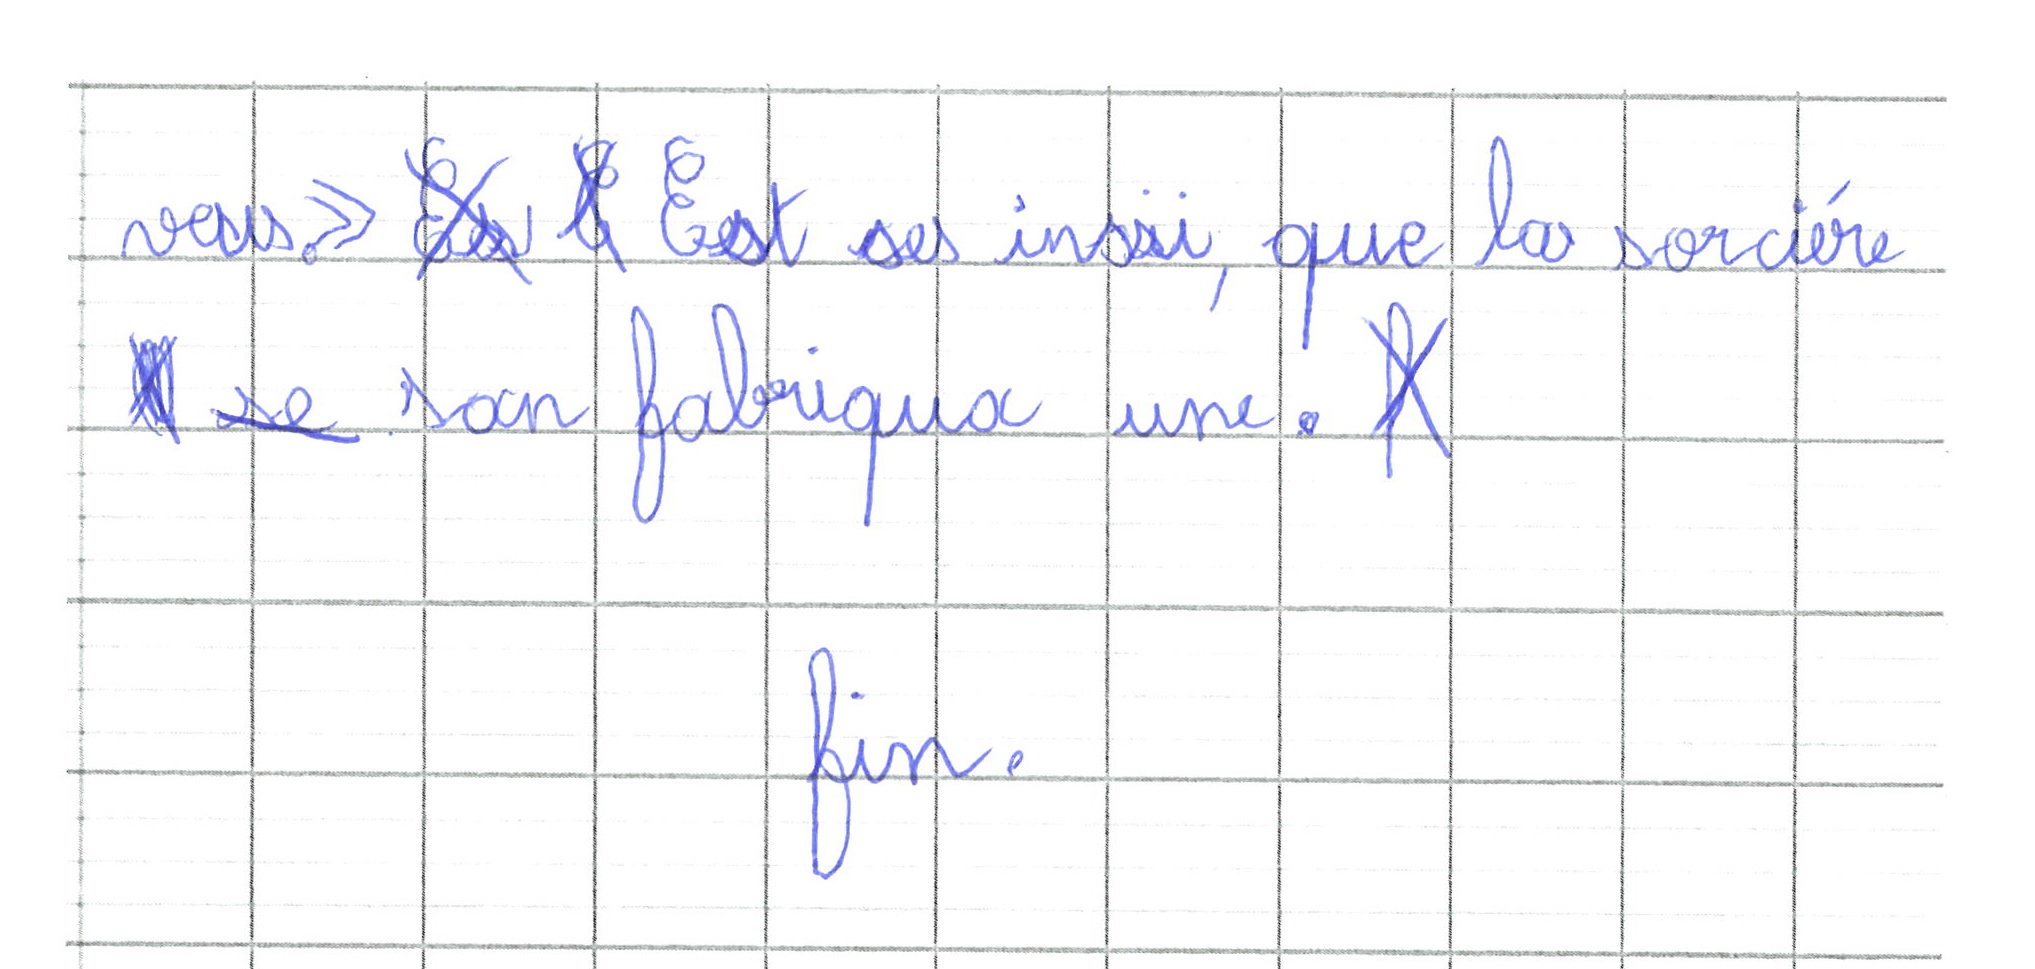 veus.» Est ses insi, que la sorciére
se san fabriqua une.
fin.